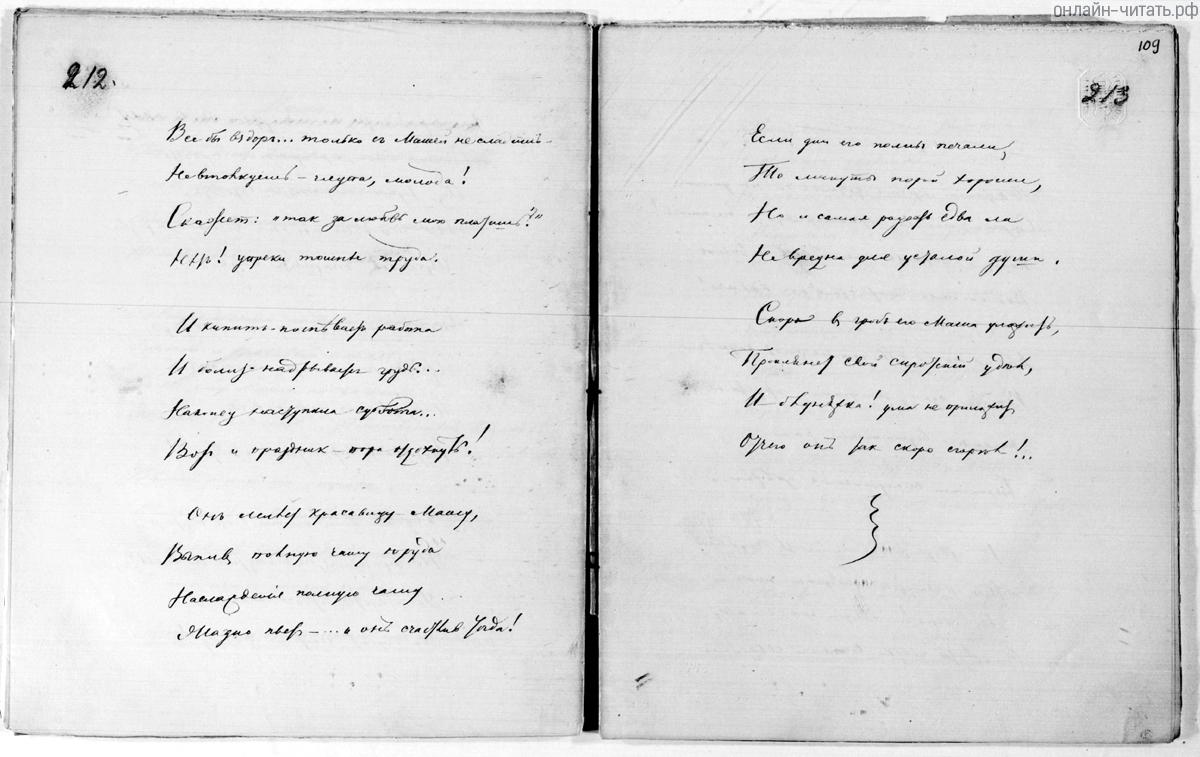 онлайн-читать.рф
212.
Все бы вздоръ... только съ Машей не сладишь -
Не втолкуешь - глупа, молода!
Скажетъ: „такъ за любовь мою платишь?"
Нѣтъ! упреки тошнѣе труда.
И кипитъ-поспѣваетъ работа
И болитъ-надрываетъ грудь...
Наконецъ наступила суббота...
Вотъ и праздник - пора отдохнуть!
Онъ лелѣетъ красавицу Машу,
Выпивъ полную чашу труда
Наслажденія полную чашу
Жадно пьетъ - ... и онъ счастливъ тогда!
109
213
Если дни его полны печали,
То минуты порой хороши,
Но и самая радость едва ли
Не вредна для усталой души.
Скоро въ гробъ его Маша уложитъ,
Проклянетъ свой сиротскій удѣлъ,
И бѣдняжка! ума не приложитъ
Отчего онъ такъ скоро сгорѣлъ!...